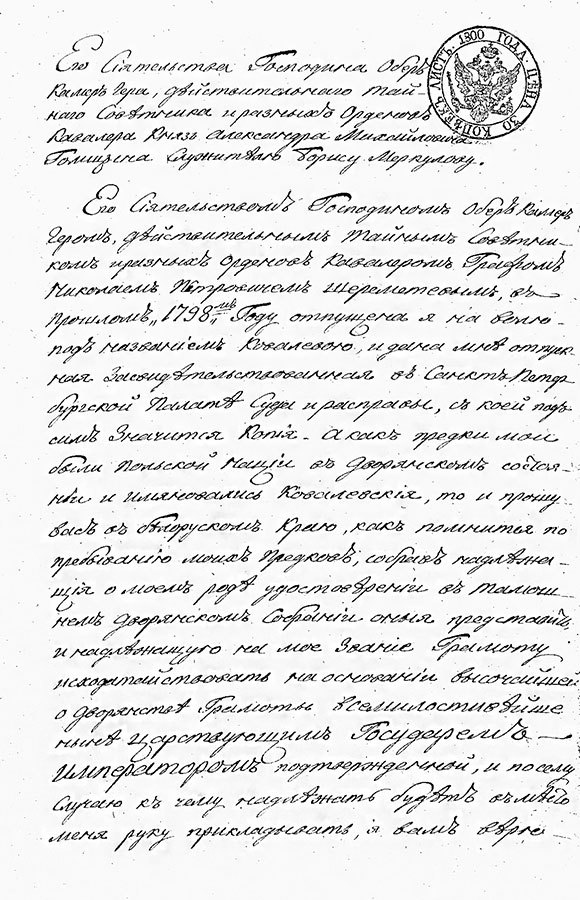 ЛИСТЪ. 1800 ГОДА. ЦѢНА 30 КОПѢЕКЪ
Его Сіятельства Господина Оберъ
Камеръ Гера, дѣйствительнаго тай-
наго Совѣтника и разныхъ Орденовъ
Кавалера Князь Александра Михайловича
Голицена Служителю Борису Меркулову.
Его Сіятельствомъ Господиномъ Оберъ Камеръ
Геромъ, дѣйствительнымъ тайнымъ Совѣтни-
комъ и разныхъ Орденовъ Кавалеромъ Графомъ
Николаемъ Петровичемъ Шереметевымъ, въ
прошломъ „1798„мъ Году отпущена я на волю
подъ названіемъ Ковалевою, и дана мнѣ отпуск-
ная Засвидѣтельствованная въ Санктъ Петер-
бургской Палатѣ Суда и расправы, съ коей подъ
симъ Значится Копія - А какъ предки мои
были Польской нацїи въ Дворянскомъ состоя-
ніи и имяновались Ковалевскія, то и прошу
васъ въ бѣлорускомъ Краю, какъ помнится по
пребыванію моихъ Предковъ, собравъ надлѣжа-
щія о моемъ родѣ удостовѣреніи въ тамош-
немъ Дворянскомъ Собраніи оныя представить
и надлѣжащую на мое Званіе Грамоту
исходатайствовать на основаніи высочайшей
о дворянствѣ Грамоты всемилостивѣйше
нынѣ царствующимъ Государемъ
Императоромъ подтвержденной, и по сему
Случаю къ чему надлѣжать будѣтъ въмѣсто
меня руку прикладывать, я вамъ вѣрю